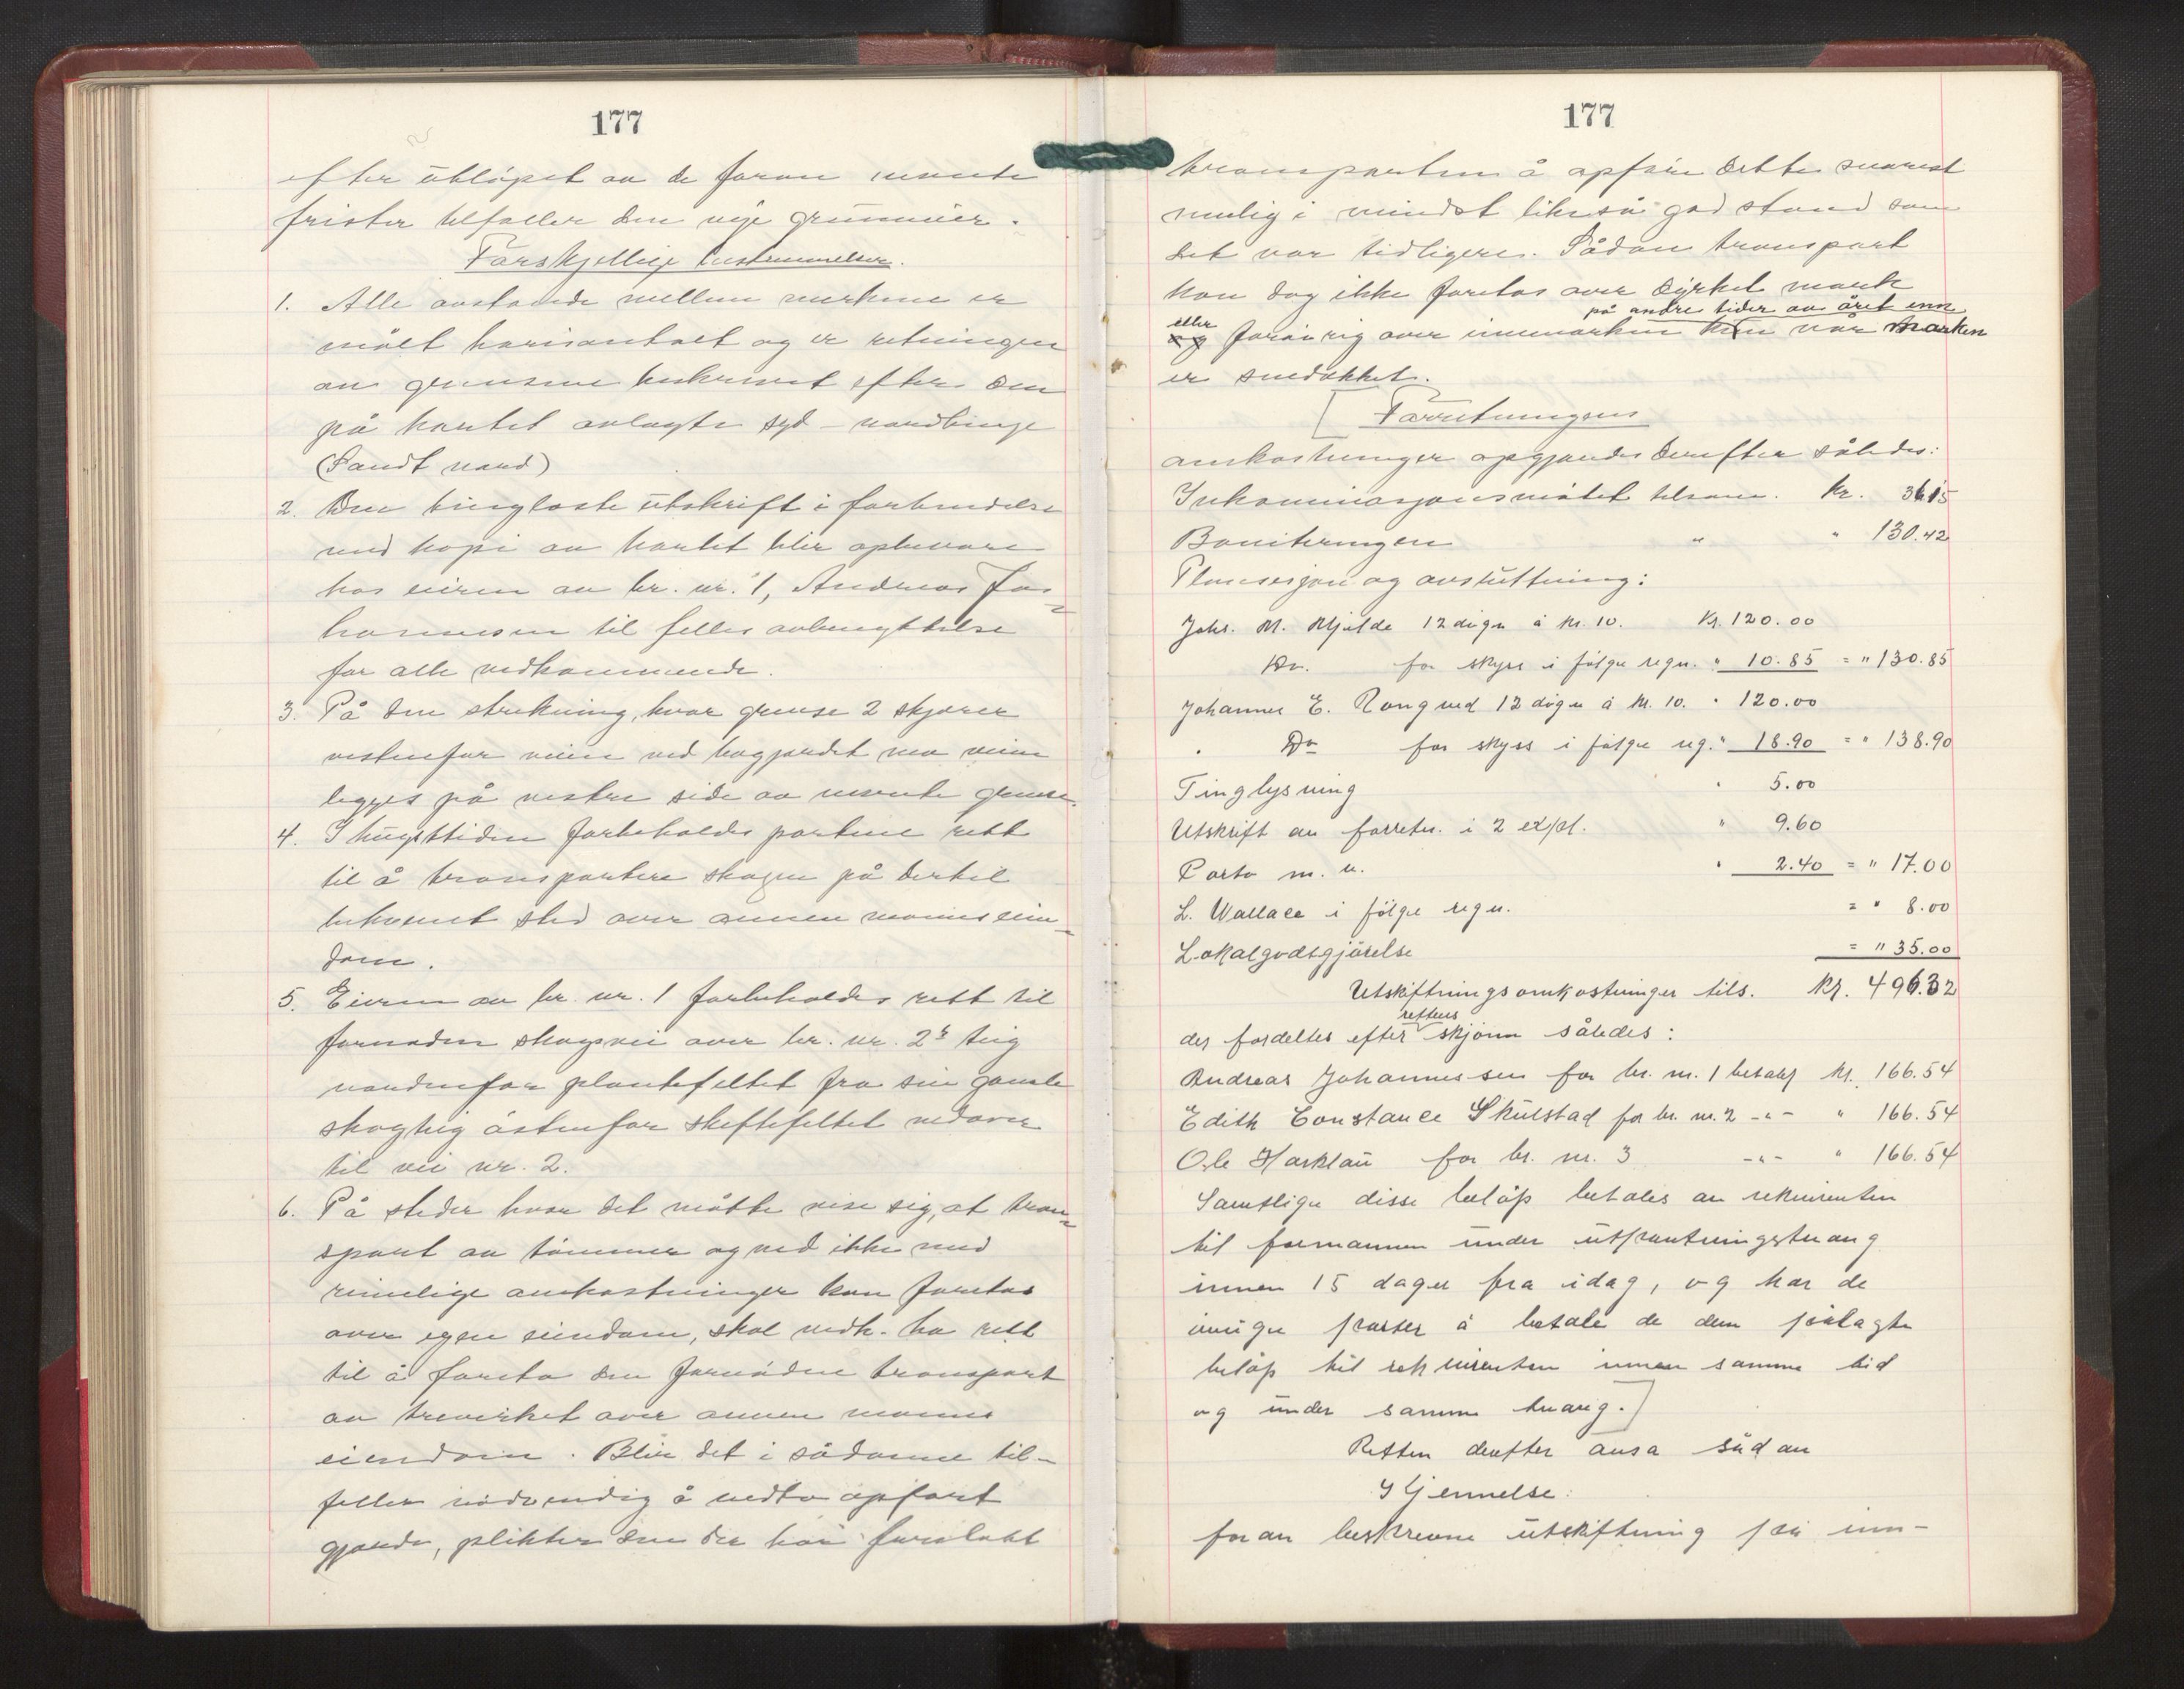 177
efter utløpet av de foran nevnte
frister tilfaller den nye grunneier.
Forskjellige bestemmelser.
1. Alle avstande mellem merkene er
målt horisontalt og er retningen
av grensene beskrevet efter den
på kartet avlagte syd-nordlinje
(Sandt nord)
2. Den tinglæste utskrift i forbindelse
med kopi av kartet blir opbevare
hos eieren av br. nr. 1, Andreas Jo-
hannesen til felles avbenyttelse
for alle vedkommende.
3. På den strekning, hvor grense 2 skjærer
vestenfor veien ved bøgjerdet må veien
legges på vestre side av nevnte grense.
4. I hugsttiden forbeholdes partene rett
til å transportere skogen på dertil
bekvemt sted over annen manns eien-
dom.
5. Eieren av br. nr. 1 forbeholdes rett til
fornøden skogsvei over br. nr. 2's teig
nordenfor plantefeltet fra sin gamle
skogteig østenfor skiftefeltet nedover
til vei nr. 2.
6. På steder hvor det måtte vise sig, at tran-
sport av tømmer og ved ikke med
rimelige omkostninger kan foretas
over egen eiendom, skal vedk. ha rett
til å foreta den fornødne transport
av trevirket over annen manns
eiendom. Blir det i sådanne til-
feller nødvendig å nedta opført
gjerde, plikter den der har foretatt
177
transporten å opføre dette snarest
mulig i mindst likeså god stand som
det var tidligere. Sådan transport
kan dog ikke foretas over dyrket mark
på andre tider av året enn
eller
og forøvrig over innmarken når marken
er snedekket.
[Forretningens
omkostninger opgjordes derefter således:
Inkaminasjonsmøtet tilsam. Kr. 36.15
Boniteringen " " 130.42
Plansesjon og avslutning:
Johs. M. Mjelde 12 døgn à kr. 10. Kr. 120.00
Do. for skyss i følge regn. " 10.85 = " 130.85
Johannes E. Rongved 12 døgn à kr. 10. " 120.00
" Do for skyss i følge reg. " 18.90 = " 138.90
Tinglysning " 5.00
Utskrift av forretn. i 2 expl. " 9.60
Porto m. v. " 2.40 = " 17.00
L. Wallace i følge regn. = " 8.00
Lokalgodtgjørelse = " 35.00
Utskiftningsomkostninger tils. Kr. 496.32
rettens
der fordeltes efter skjønn således:
Andreas Johannessen for br. nr. 1 betaler kr. 166.54
Edith Constance Skulstad for br. nr. 2 -"- " 166.54
Ole Harklau for br. nr. 3 -"- " 166.54
Samtlige disse beløp betales av rekvirenten
til formannen under utpantningstvang
innen 15 dager fra idag, og har de
øvrige parter å betale de dem pålagte
beløp til rekvirenten innen samme tid
og under samme tvang.]
Retten derefter avsa sådan
Kjennelse:
foran beskrevne utskiftning på inn-